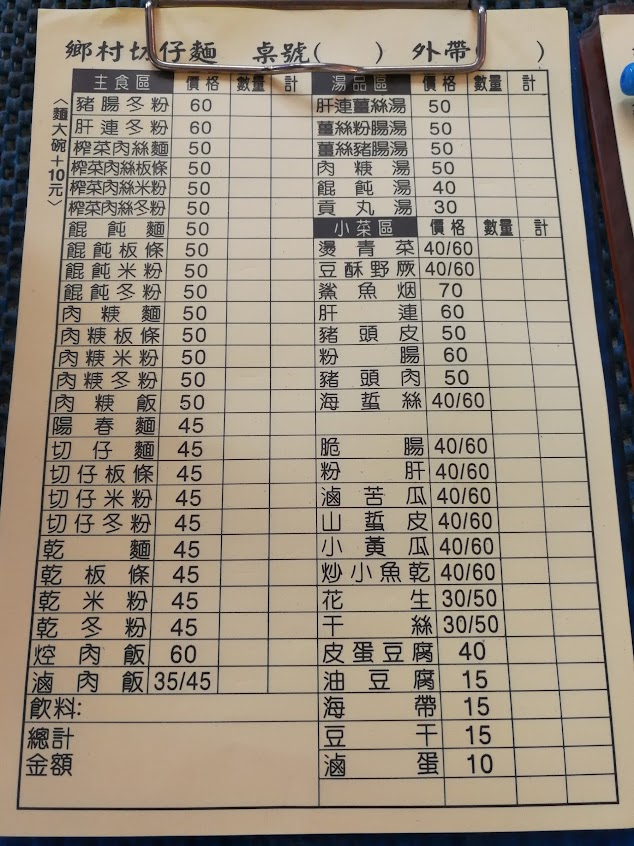 鄉村切仔麵 桌號( ) 外帶( )
〈麵大碗+10元〉
主食區 價格 數量 計
豬腸冬粉 60
肝連冬粉 60
榨菜肉絲麵 50
榨菜肉絲板條 50
榨菜肉絲米粉 50
榨菜肉絲冬粉 50
餛飩麵 50
餛飩板條 50
餛飩米粉 50
餛飩冬粉 50
肉焿麵 50
肉焿板條 50
肉焿米粉 50
肉焿冬粉 50
肉焿飯 50
陽春麵 45
切仔麵 45
切仔板條 45
切仔米粉 45
切仔冬粉 45
乾麵 45
乾板條 45
乾米粉 45
乾冬粉 45
焢肉飯 60
滷肉飯 35/45
飲料:
總計
金額
湯品區 價格 數量 計
肝連薑絲湯 50
薑絲粉腸湯 50
薑絲豬腸湯 50
肉焿湯 50
餛飩湯 40
貢丸湯 30
小菜區 價格 數量 計
燙青菜 40/60
豆酥野蕨 40/60
鯊魚烟 70
肝連 60
豬頭皮 50
粉腸 60
豬頭肉 50
海蜇絲 40/60
脆腸 40/60
粉肝 40/60
滷苦瓜 40/60
山蜇皮 40/60
小黃瓜 40/60
炒小魚乾 40/60
花生 30/50
干絲 30/50
皮蛋豆腐 40
油豆腐 15
海帶 15
豆干 15
滷蛋 10